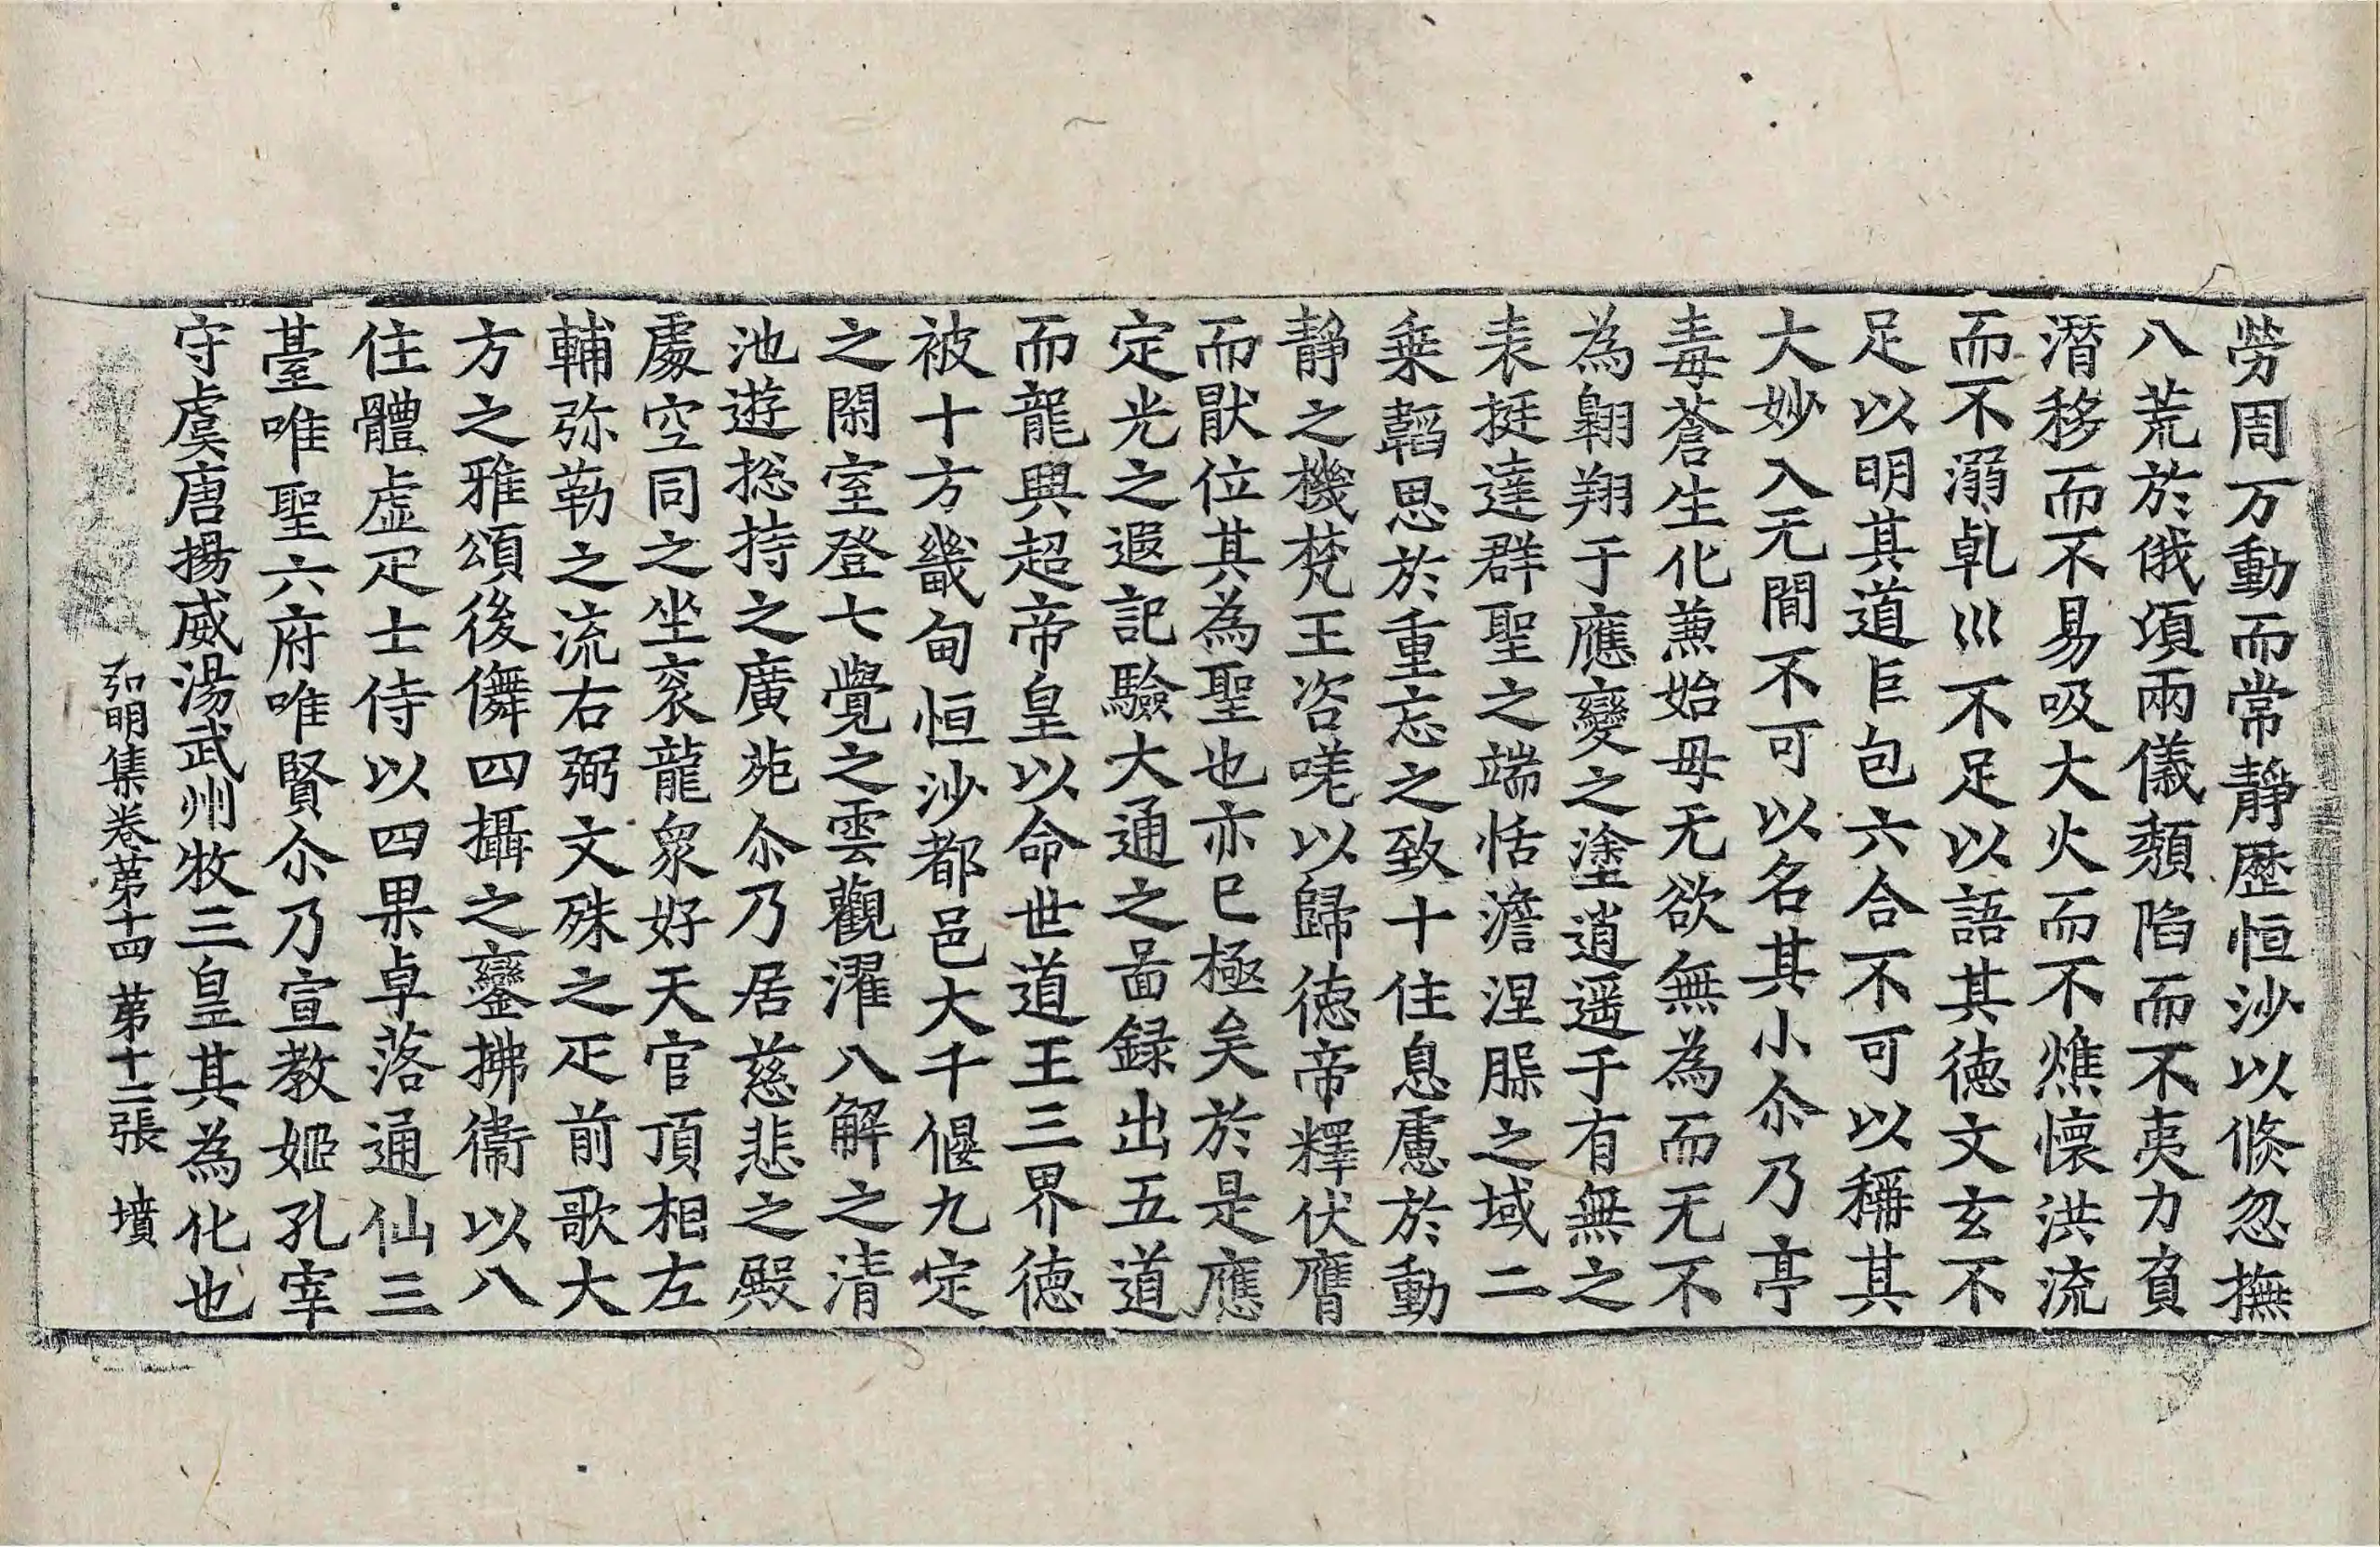 勞周万動而常靜歷恒沙以倏忽撫
八荒於俄頃兩儀頽陷而不夷力負
潛移而不易吸大火而不燋懷洪流
而不溺乹巛不足以語其徳文玄不
足以明其道巨包六合不可以稱其
大妙入无閒不可以名其小尒乃亭
毒蒼生化蕙始母无欲無為而无不
為翺翔于應變之塗逍遥于有無之
表挺達群聖之端恬澹涅槃之域二
乗韜思於重忘之致十住息慮於動
靜之機梵王咨嗟以歸徳帝釋伏膺
而猒位其為聖也亦已極矣於是應
定光之遐記驗大通之啚録出五道
而龍興超帝皇以命世道王三界徳
被十方畿甸恒沙都邑大千偃九定
之閑室登七覺之雲觀濯八解之清
池遊揔持之廣苑尒乃居慈悲之殿
處空同之坐衮龍衆好天官頂相左
輔弥勒之流右弼文殊之疋前歌大
方之雅頌後儛四攝之鑾拂衞以八
住體虛疋士侍以四果卓落通仙三
臺唯聖六府唯賢尒乃宣教姬孔宰
守虞唐揚威湯武州牧三皇其為化也
弘明集卷苐十四 苐十二張 墳